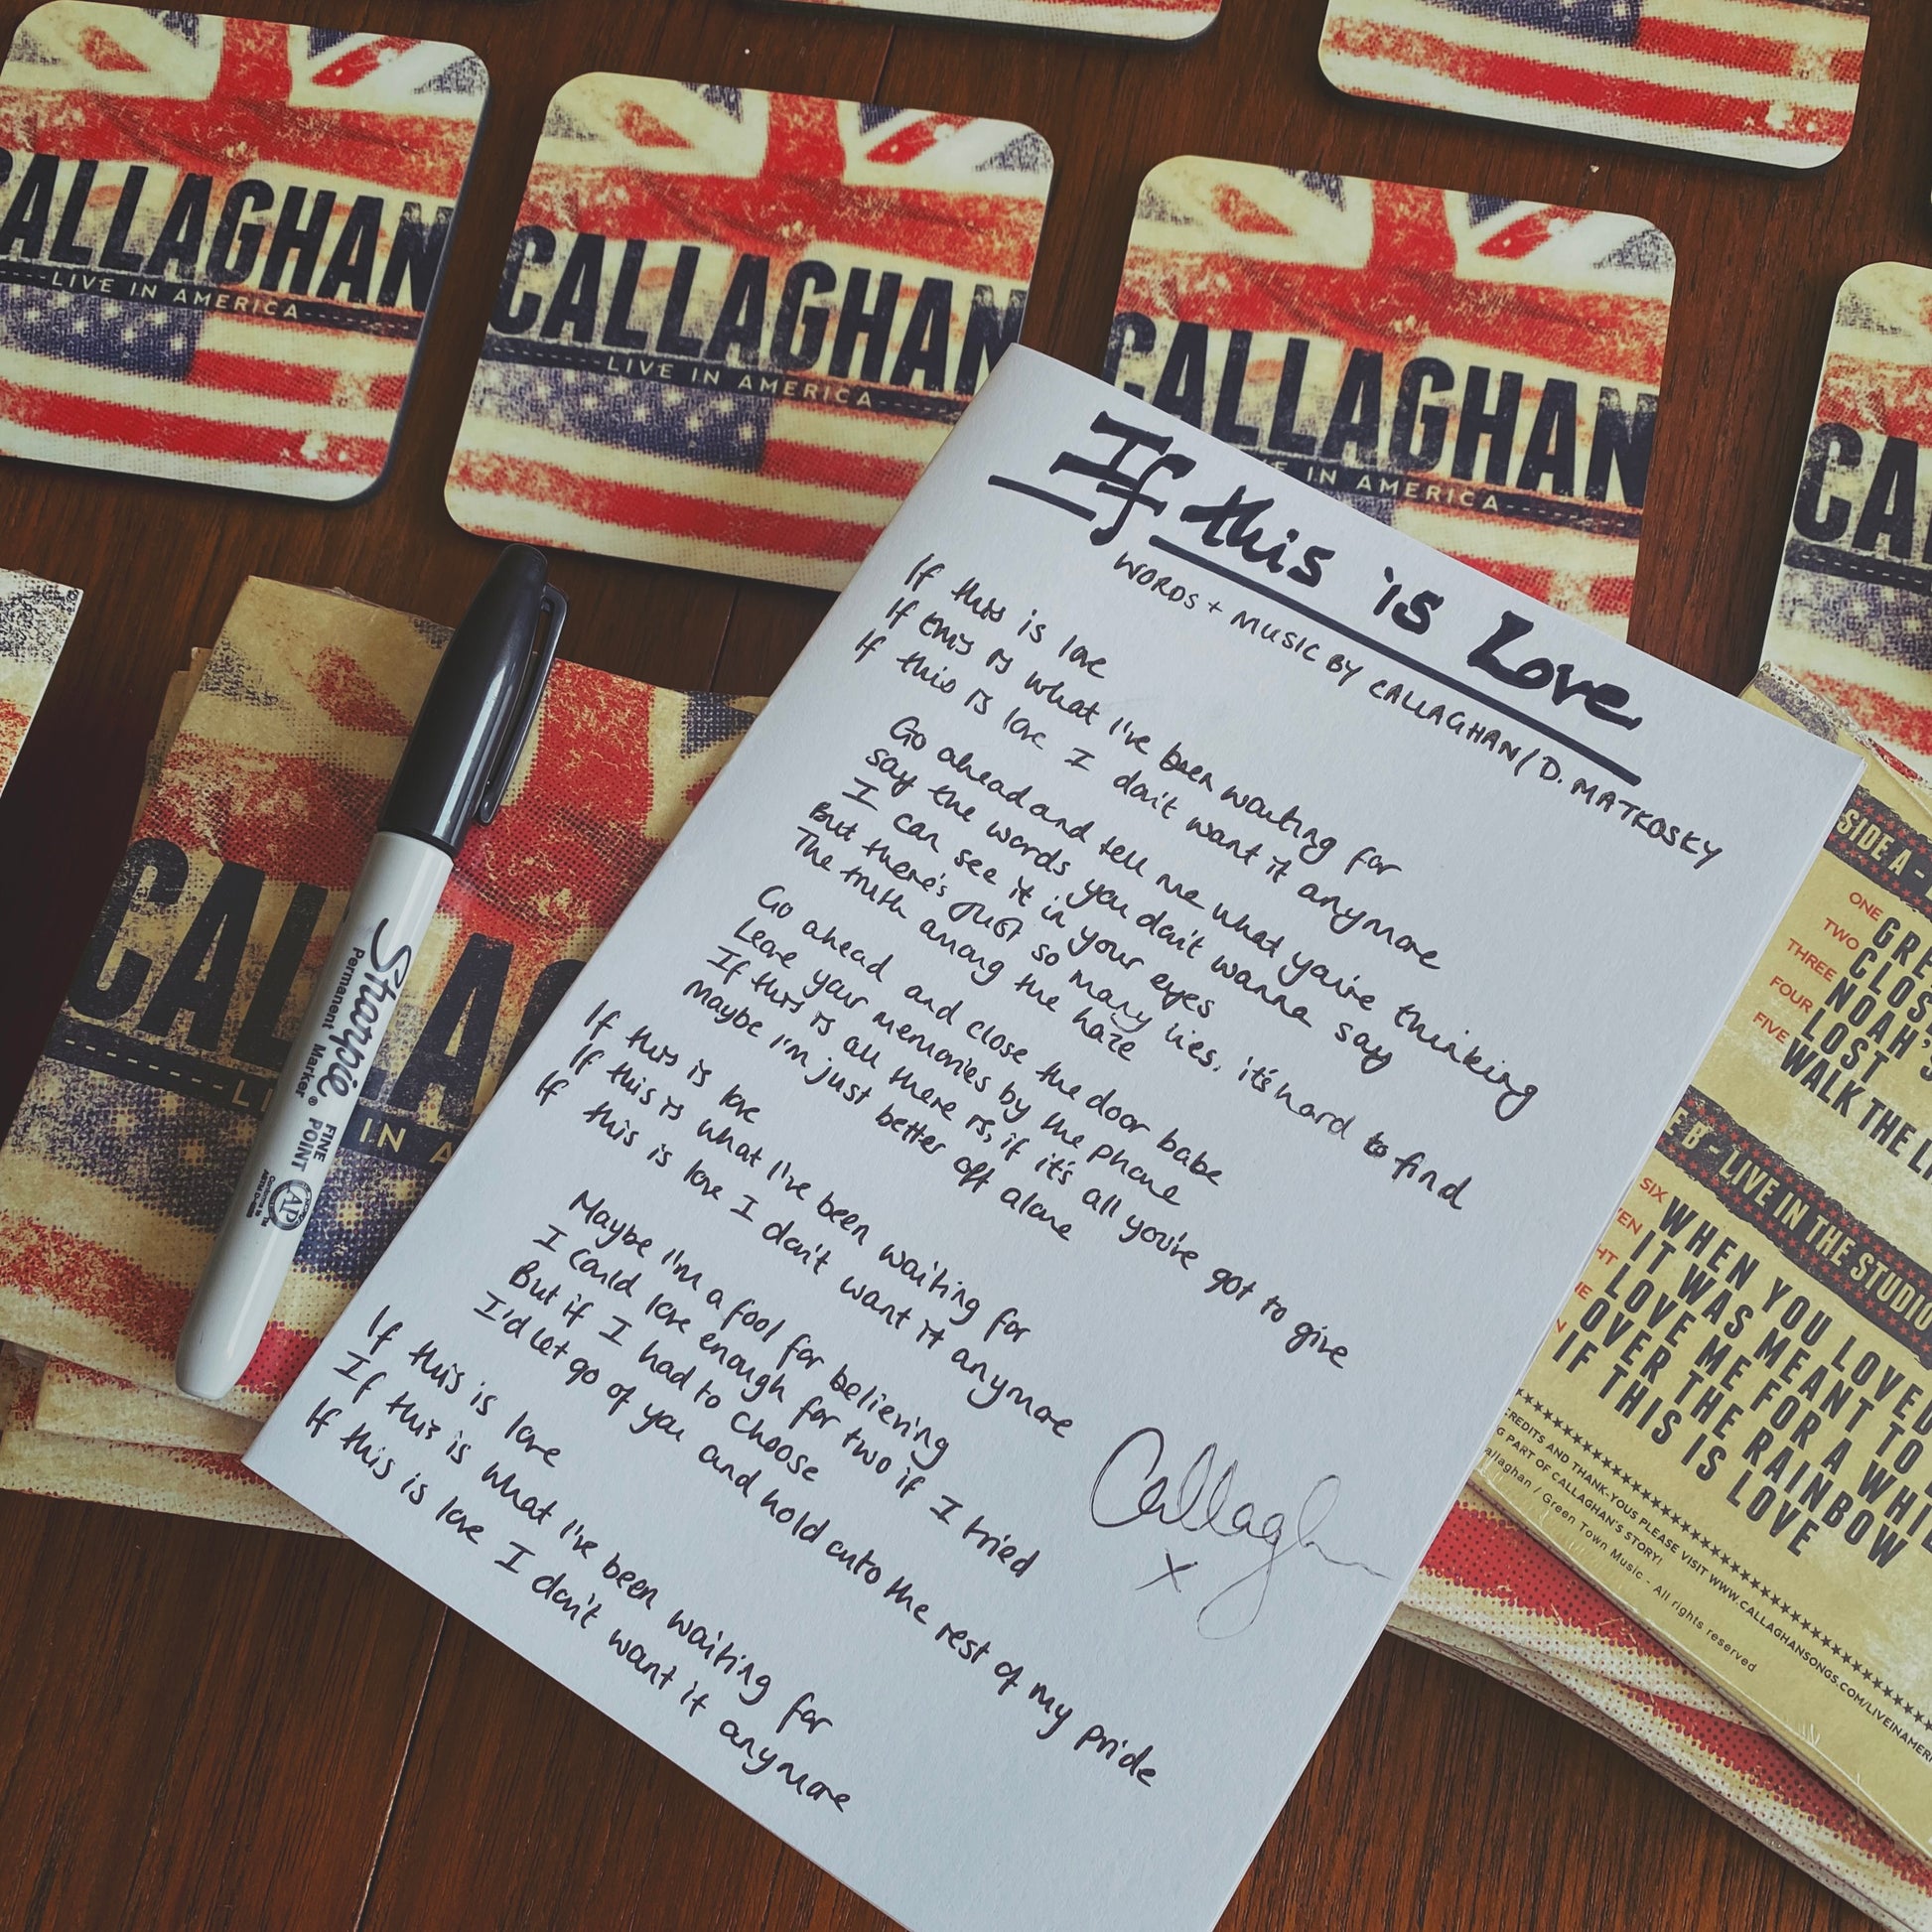 CALLAGHAN
LIVE IN AMERICA
CALLAGHAN
LIVE IN AMERICA
CALLAGHAN
E IN AMERICA
CA
CAL
AG
LI
IN A
Sharpie
Permanent Marker ®
FINE
POINT
AP
If this is Love
WORDS + MUSIC BY CALLAGHAN / D. MATKOSKY
If this is love
If this is what I've been waiting for
If this is love I don't want it anymore
Go ahead and tell me what you're thinking
say the words you don't wanna say
I can see it in your eyes
But there's just so many lies, it's hard to find
The truth among the haze
Go ahead and close the door babe
Leave your memories by the phone
If this is all there is, if it's all you've got to give
Maybe I'm just better off alone
If this is love
If this is what I've been waiting for
If this is love I don't want it anymore
Maybe I'm a fool for believing
I could love enough for two if I tried
But if I had to choose
I'd let go of you and hold onto the rest of my pride
If this is love
If this is what I've been waiting for
If this is love I don't want it anymore
Callaghan
x
SIDE A -
ONE GRE
TWO CLOS
THREE NOAH'S
FOUR LOST
FIVE WALK THE LI
E B - LIVE IN THE STUDIO
SIX WHEN YOU LOVED
EN IT WAS MEANT TO
HT LOVE ME FOR A WHI
NE OVER THE RAINBOW
N IF THIS IS LOVE
CREDITS AND THANK-YOUS PLEASE VISIT WWW.CALLAGHANSONGS.COM/LIVEINAMERI
G PART OF CALLAGHAN'S STORY!
allaghan / Green Town Music - All rights reserved